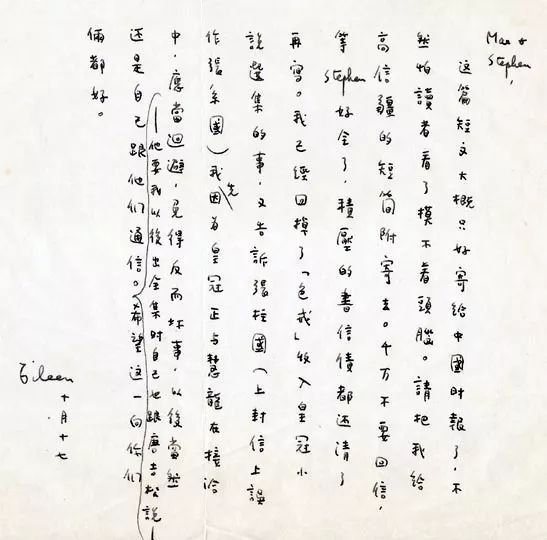 Mae &
Stephen,
这篇短文大概只好寄給中國时報了，不
然怕讀者看了摸不着頭腦。請把我给
高信疆的短简附寄去。千万不要回信，
等Stephen好全了，積壓的書信債都还清了
再寫。我已經回掉了「色戒」收入皇冠小
說選集的事，又告訴張柱國（上封信上誤
作張系國）我先因為皇冠正与楚龍在接洽
中，應當迴避，免得反而坏事，以後當然
—他要我以後出全集时自己也跟唐吉松說—
还是自己跟他们通信。希望这一向你们
倆都好。
Eileen
十月十七